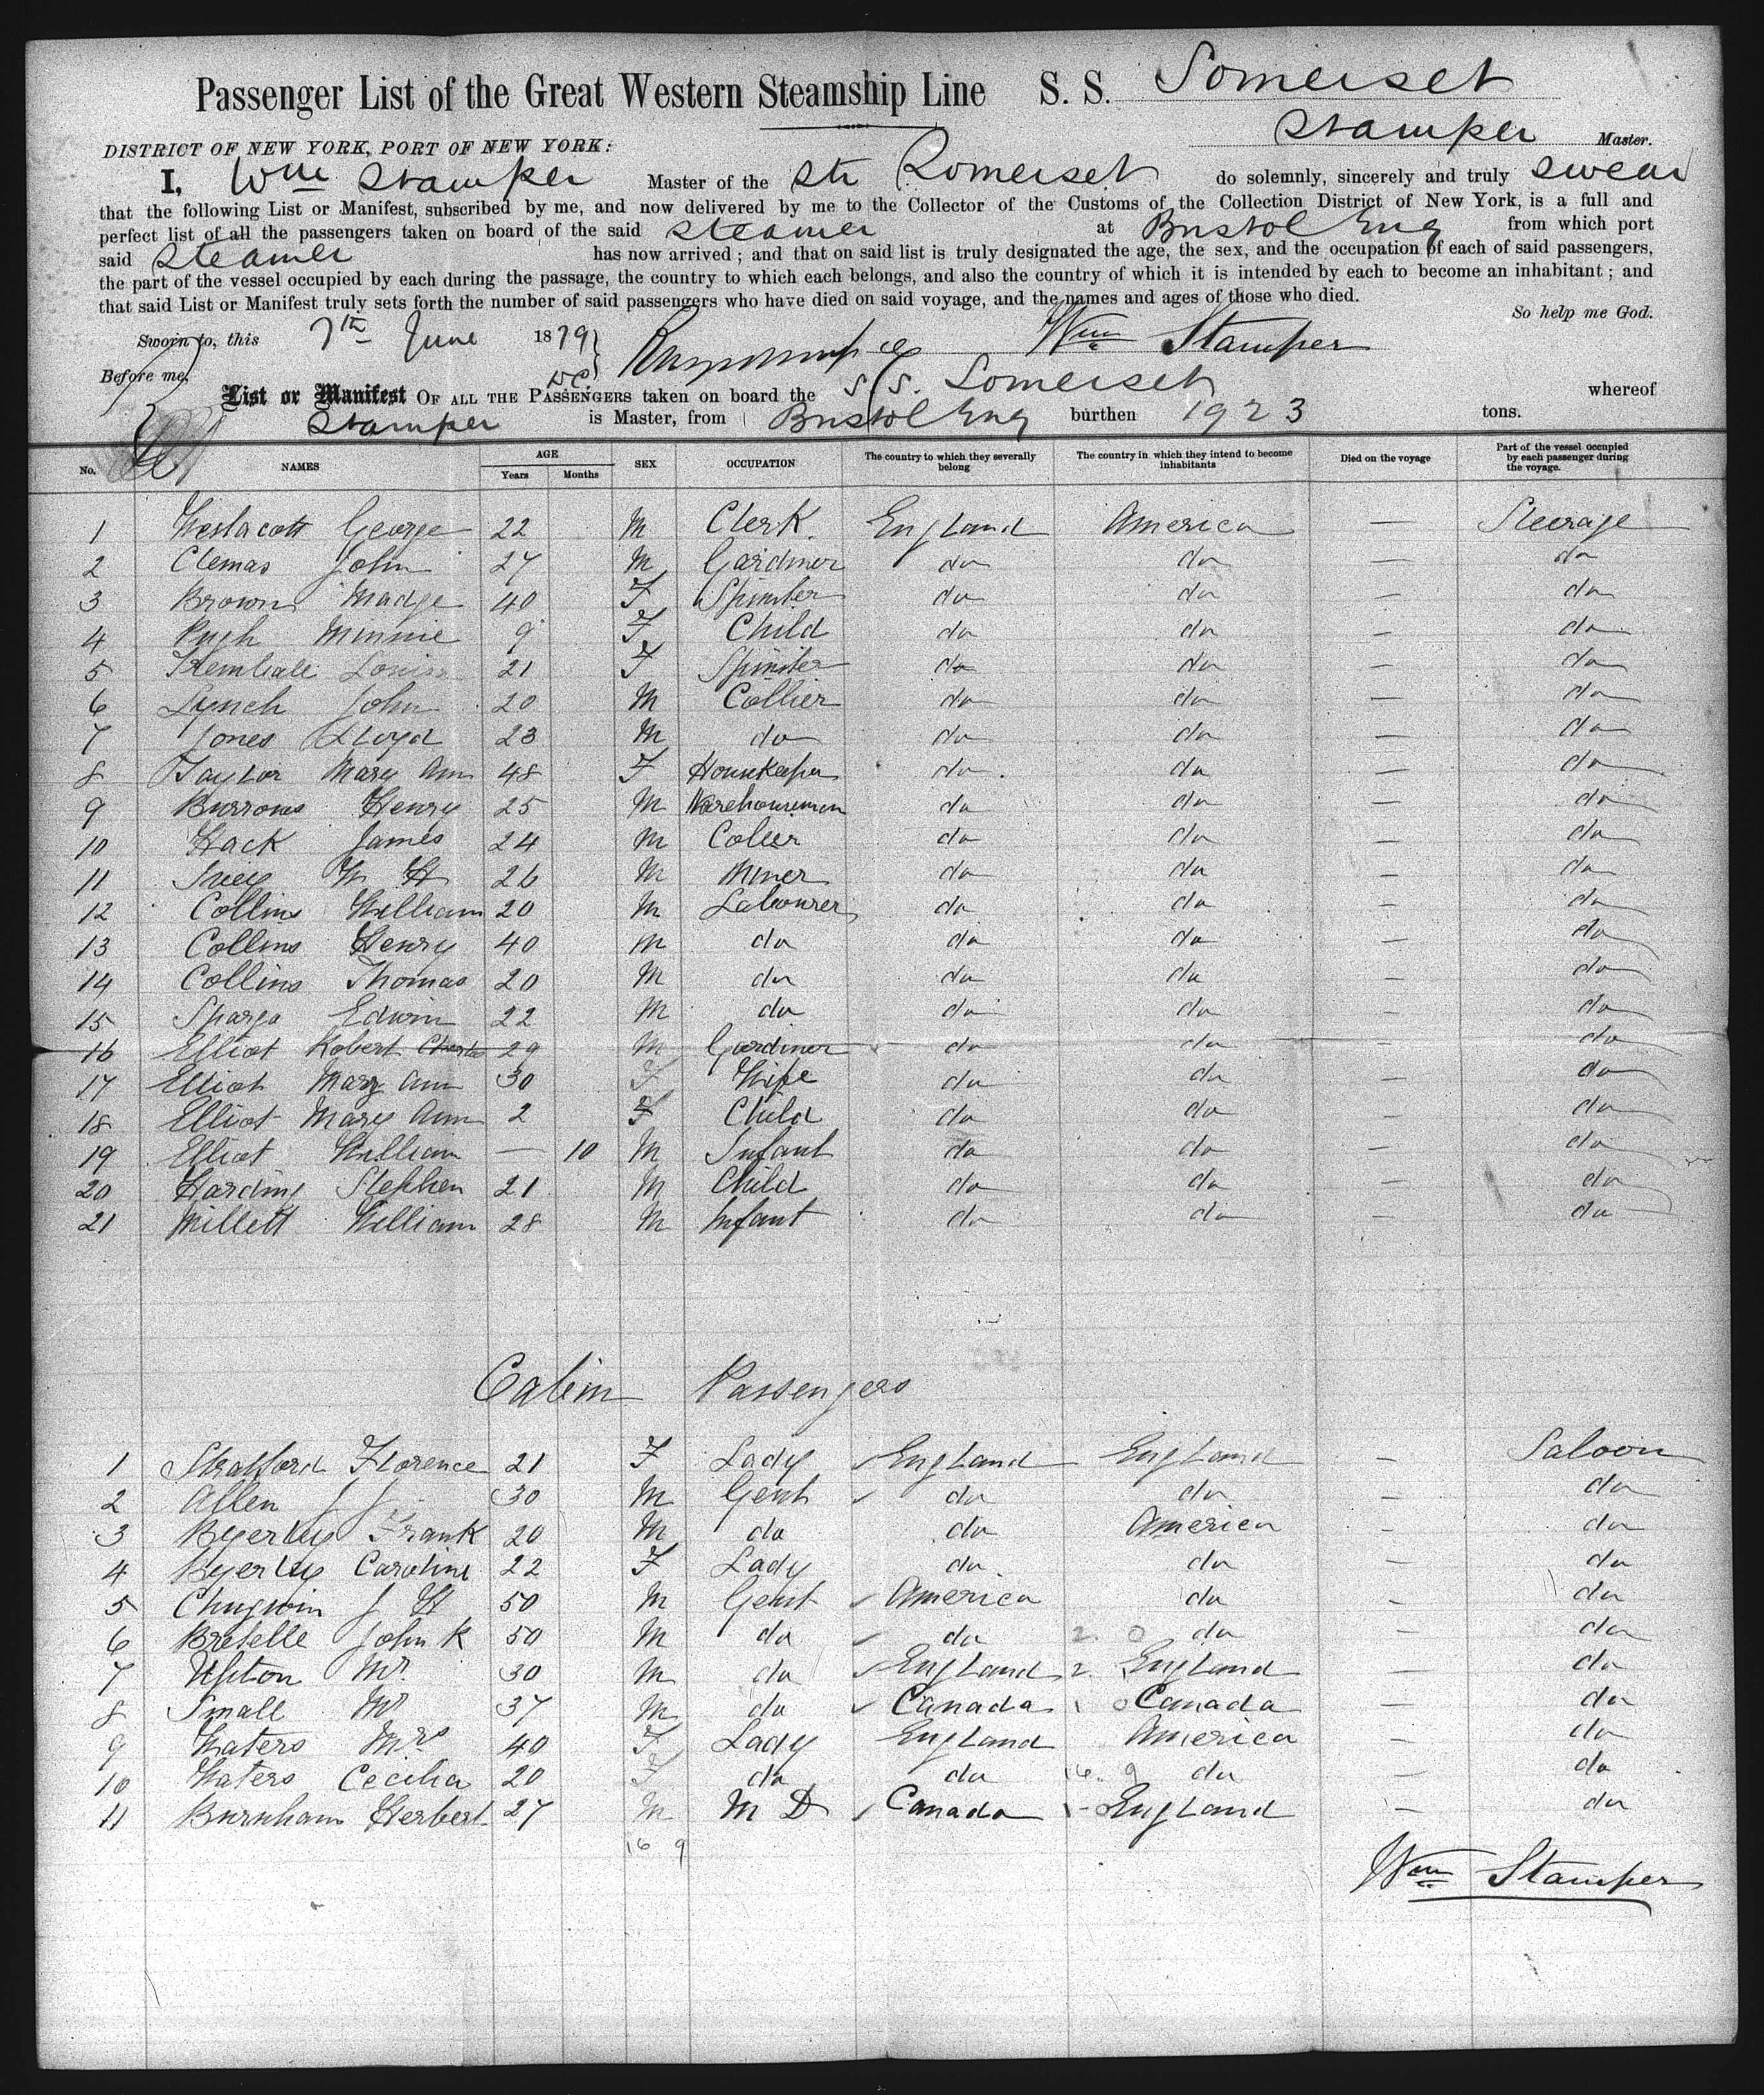 Passenger List of the Great Western Steamship Line S. S. Somerset
Stamper Master.
DISTRICT OF NEW YORK, PORT OF NEW YORK:
I, Wm Stamper Master of the Str Somerset do solemnly, sincerely and truly swear
that the following List or Manifest, subscribed by me, and now delivered by me to the Collector of the Customs of the Collection District of New York, is a full and
perfect list of all the passengers taken on board of the said Steamer at Bristol Eng from which port
said Steamer has now arrived; and that on said list is truly designated the age, the sex, and the occupation of each of said passengers,
the part of the vessel occupied by each during the passage, the country to which each belongs, and also the country of which it is intended by each to become an inhabitant; and
that said List or Manifest truly sets forth the number of said passengers who have died on said voyage, and the names and ages of those who died.
So help me God.
Sworn to, this 7th June 1879 Wm Stamper
Before me,
List or Manifest OF ALL THE PASSENGERS taken on board the S.S. Somerset whereof
Stamper is Master, from Bristol Eng burthen 1923 tons.
No. NAMES AGE Years Months SEX OCCUPATION The country to which they severally belong The country in which they intend to become inhabitants Died on the voyage Part of the vessel occupied by each passenger during the voyage.
1 Westacott George 22 M Clerk England America — Steerage
2 Clemas John 27 M Gardiner do do — do
3 Brown Madge 40 F Spinster do do — do
4 Pugh Minnie 9 F Child do do — do
5 Louisa 21 F Spinster do do — do
6 Lynch John 20 M Collier do do — do
7 Jones Lloyd 23 M do do do — do
8 Taylor Mary Ann 48 F Housekeeper do do — do
9 Burrows Henry 25 M Warehouseman do do — do
10 Hack James 24 M Colier do do — do
11 Ivey W H 26 M Miner do do — do
12 Collins William 20 M Labourer do do — do
13 Collins Henry 40 M do do do — do
14 Collins Thomas 20 M do do do — do
15 Spargo Edwin 22 M do do do — do
16 Elliot Robert Charles 29 M Gardiner do do — do
17 Elliot Mary Ann 30 F Wife do do — do
18 Elliot Mary Ann 2 F Child do do — do
19 Elliot William — 10 M Infant do do — do
20 Harding Stephen 21 M Child do do — do
21 Millett William 28 M Infant do do — do
Cabin Passengers
1 Stratford Florence 21 F Lady England England — Saloon
2 Allen J J 30 M Gent do do — do
3 Byerley Frank 20 M do do America — do
4 Byerley Caroline 22 F Lady do do — do
5 Chugwin J H 50 M Gent America do — do
6 John K 50 M do do 2. 0 do — do
7 Upton Mr. 30 M do England 2. England — do
8 Small Mr 37 M do Canada 1 0 Canada — do
9 Waters Mrs 40 F Lady England America — do
10 Waters Cecilia 20 F do do 16. 9 do — do
11 Burnham Herbert 27 M M D Canada 1-0 England — do
16 9
Wm Stamper